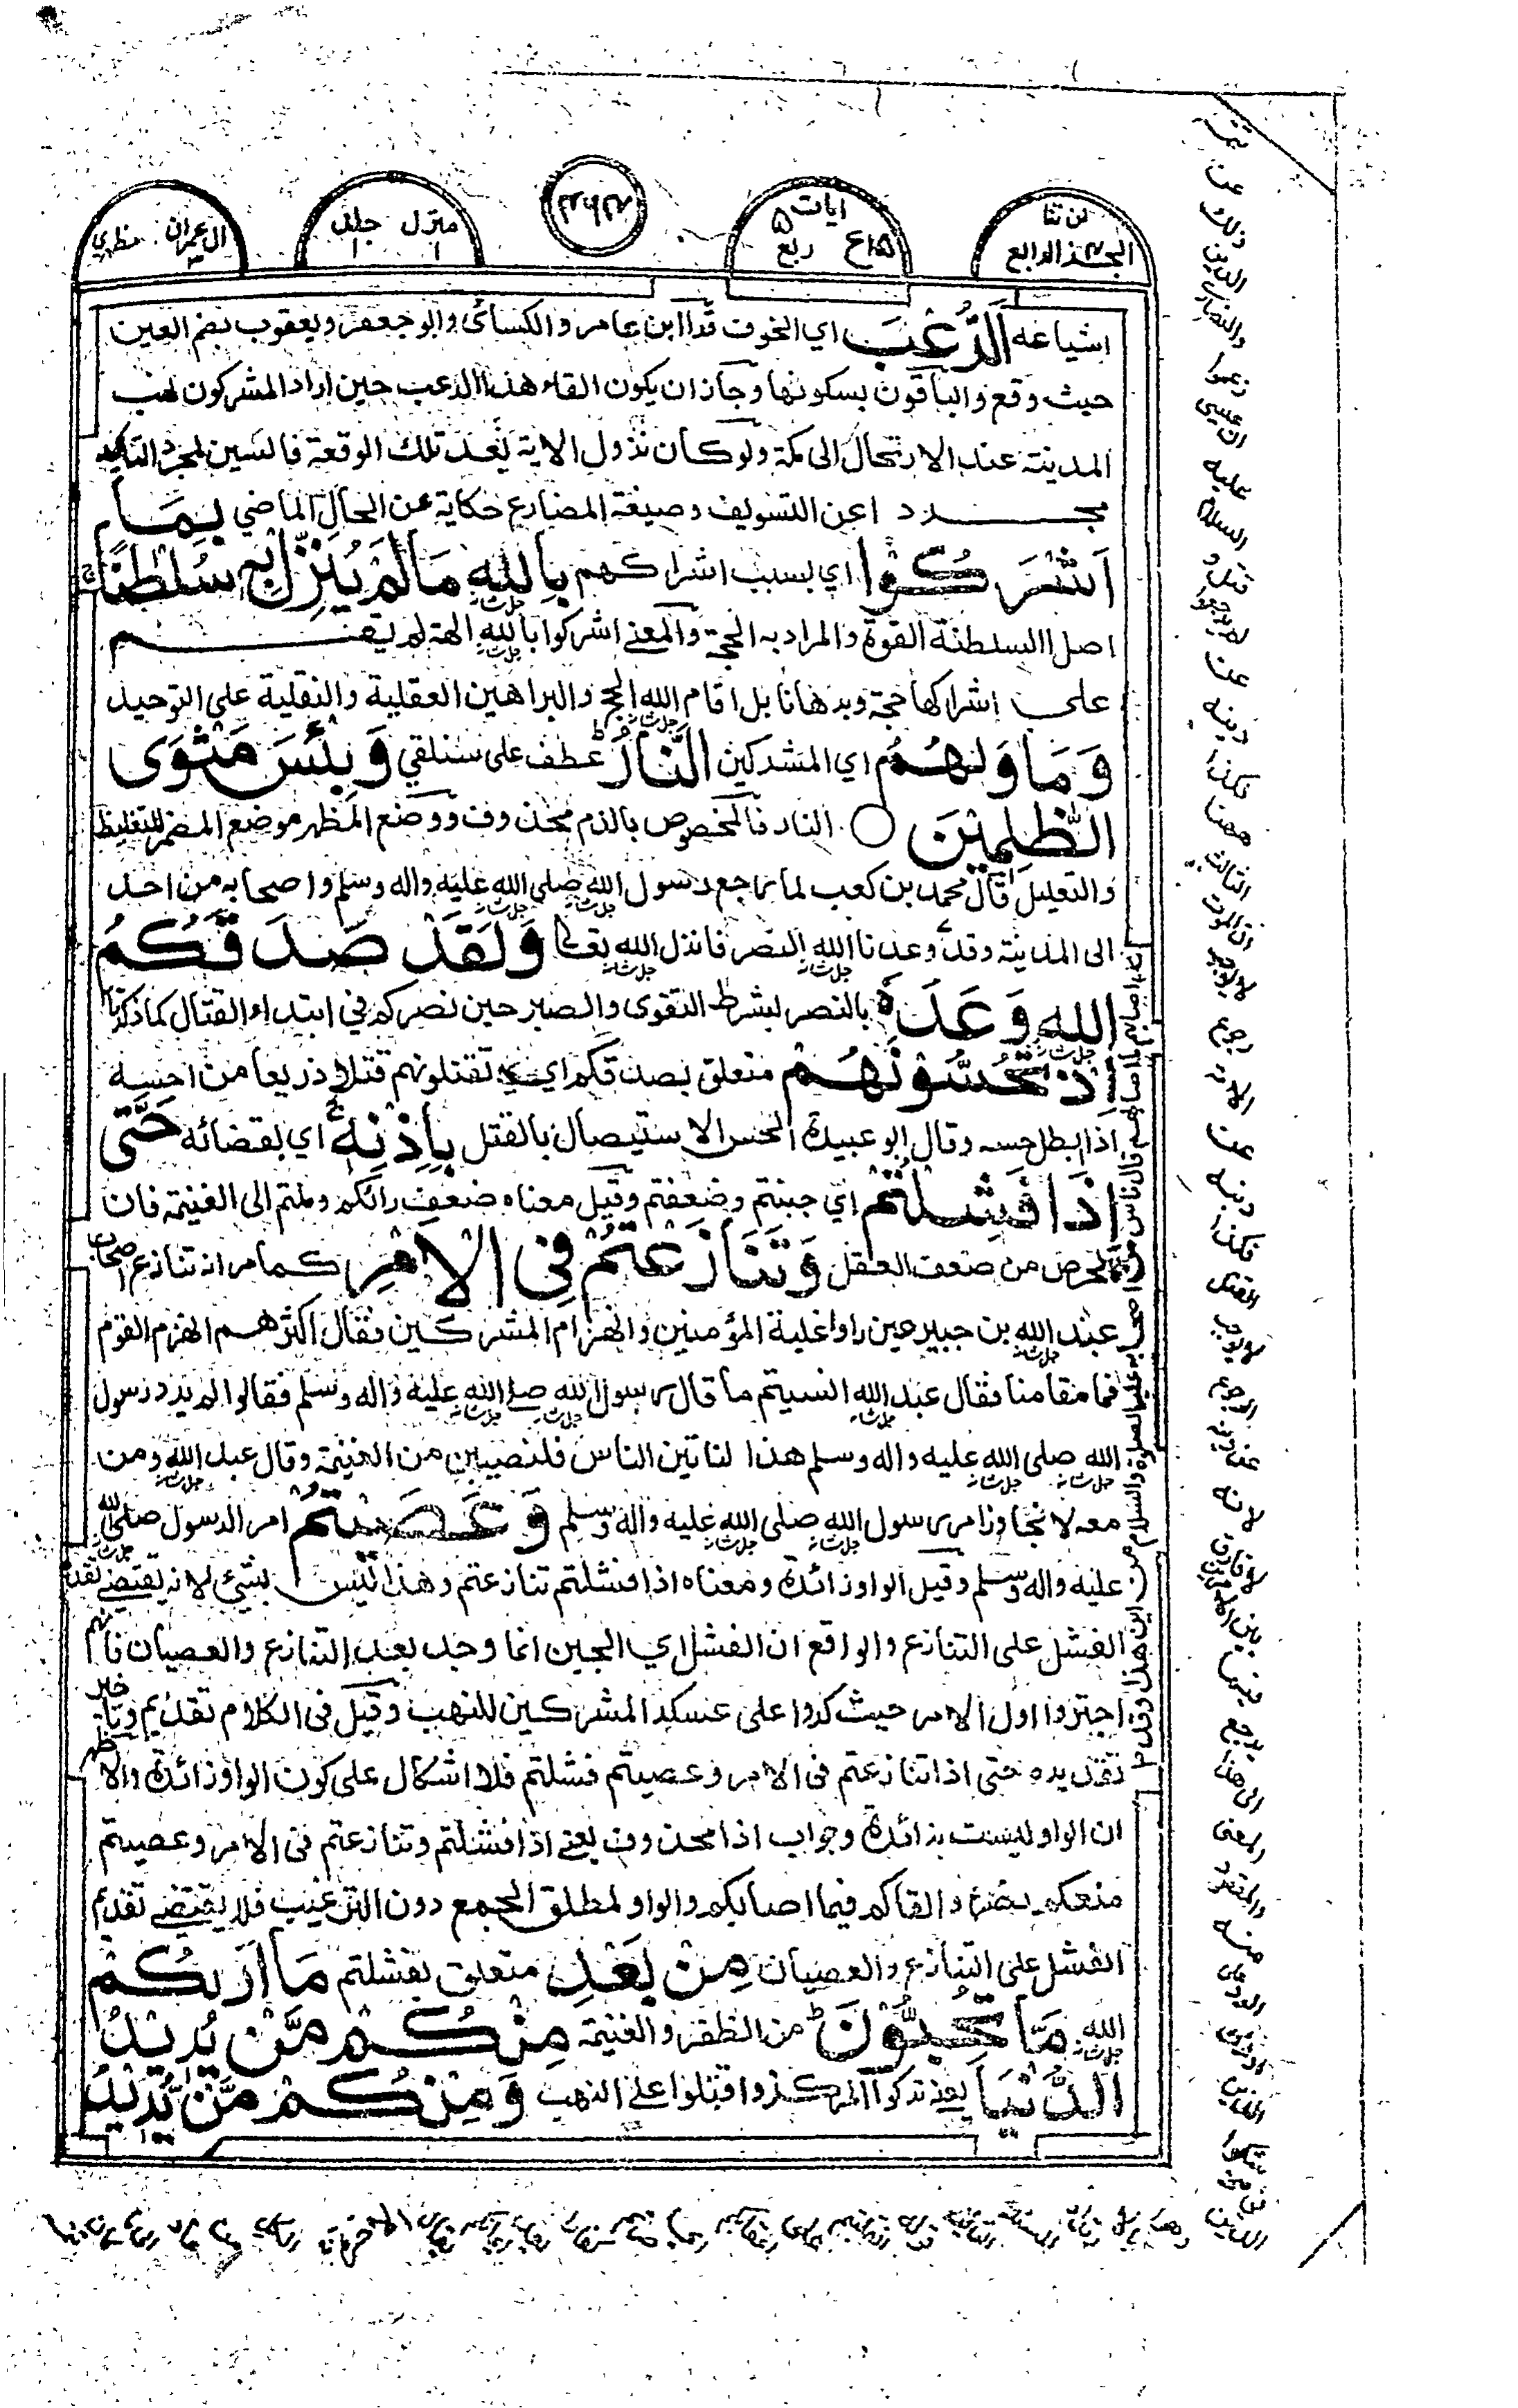 لن تنا
الجزء الرابع
ايات ٥
١٥ع ربع
منزل جلد
١ ١
ال عمران مظهري
٣
اشياعه الرُّعْبَ اي الخوف قرا ابن عامر والكسائى وابو جعفر ويعقوب بضم العين
حيث وقع والباقون بسكونها وجاز ان يكون القاء هذا الرعب حين اراد المشركون نهب
المدينة عند الارتحال الى مكة ولو كان نزول الاية بعد تلك الوقعة فالسين لمجرد التاكيد
مجردا عن التسويف وصيغة المضارع حكاية عن الحال الماضي بِمَا
اَشْرَكُوْا اي بسبب اشراكهم بِاللهِ مَا لَمْ يُنَزِّلْ بِهٖ سُلْطٰنًا ج
اصل السلطنة القوة والمراد به الحجة والمعنى اشركوا بالله الهة لم يقم
على اشراكها حجة وبرهانا بل اقام الله الحج والبراهين العقلية والنقلية على التوحيد
وَمَاْوٰىهُمُ اي المشركين النَّارُ ط عطف على سنلقي وَبِئْسَ مَثْوَى
الظّٰلِمِيْنَ ○ النار فالمخصوص بالذم محذوف ووضع المظهر موضع المضمر للتغليظ
والتعليل قال محمد بن كعب لما رجع رسول الله صلى الله عليه واله وسلم واصحابه من احد
الى المدينة وقد وعدنا الله النصر فانزل الله تعالى وَلَقَدْ صَدَقَكُمُ
اللهُ وَعْدَهٗ بالنصر بشرط التقوى والصبر حين نصركم في ابتداء القتال كما ذكرنا
اِذْ تَحُسُّوْنَهُمْ متعلق بصدقكم اي تقتلونهم قتلا ذريعا من احسه
اذا ابطل حسه وقال ابو عبيدة الحس الاستيصال بالقتل بِاِذْنِهٖ ج اي بقضائه حَتّٰى
اِذَا فَشِلْتُمْ اي جبنتم وضعفتم وقيل معناه ضعف رائكم وملتم الى الغنيمة فان
الحرص من ضعف العقل وَتَنَازَعْتُمْ فِى الْاَمْرِ كما مر اذ تنازع اصحاب
عبد الله بن جبير حين راوا غلبة المؤمنين وانهزام المشركين فقال اكثرهم انهزم القوم
فما مقامنا فقال عبد الله انسيتم ما قال رسول الله صلى الله عليه واله وسلم فقالوا لم يرد رسول
الله صلى الله عليه واله وسلم هذا لناتين الناس فلنصيبن من الغنيمة وقال عبد الله ومن
معه لا نجاوز امر رسول الله صلى الله عليه واله وسلم وَعَصَيْتُمْ امر الرسول صلى الله
عليه واله وسلم وقيل الواو زائدة ومعناه اذا فشلتم تنازعتم وهذا ليس بشيء لانه يقتضى تقدم
الفشل على التنازع والواقع ان الفشل اي الجبن انما وجد بعد التنازع والعصيان فانهم
اجتروا اول الامر حيث كروا على عسكر المشركين للنهب وقيل فى الكلام تقديم وتاخير
تقديره حتى اذا تنازعتم فى الامر وعصيتم فشلتم فلا اشكال على كون الواو زائدة والاظهر
ان الواو ليست بزائدة وجواب اذا محذوف يعنى اذا فشلتم وتنازعتم فى الامر وعصيتم
منعكم نصره والقاكم فيما اصابكم والواو لمطلق الجمع دون الترتيب فلا يقتضى تقدم
الفشل على التنازع والعصيان مِنْ بَعْدِ متعلق بفشلتم مَا اَرٰىكُمْ
الله مَّا تُحِبُّوْنَ ط من الظفر والغنيمة مِنْكُمْ مَّنْ يُّرِيْدُ
الدُّنْيَا يعني تركوا المركز واقبلوا على النهب وَمِنْكُمْ مَّنْ يُّرِيْدُ
عن
ذلك
الدين
والنصارى
زعموا
ان عيسى
عليه
السلام
قتل و
عن
دينه
فكذا
ههنا
الثالث
ان الموت
لا يوجب
رجوع
الامة
عن
دينه
فكذا
القتل
لا يوجب
الرجوع
عن دينه
لانه
لا فارق
بين الامرين
يرجع
الى هذا
المعنى
والمقصود
منه
الرد على
الذين